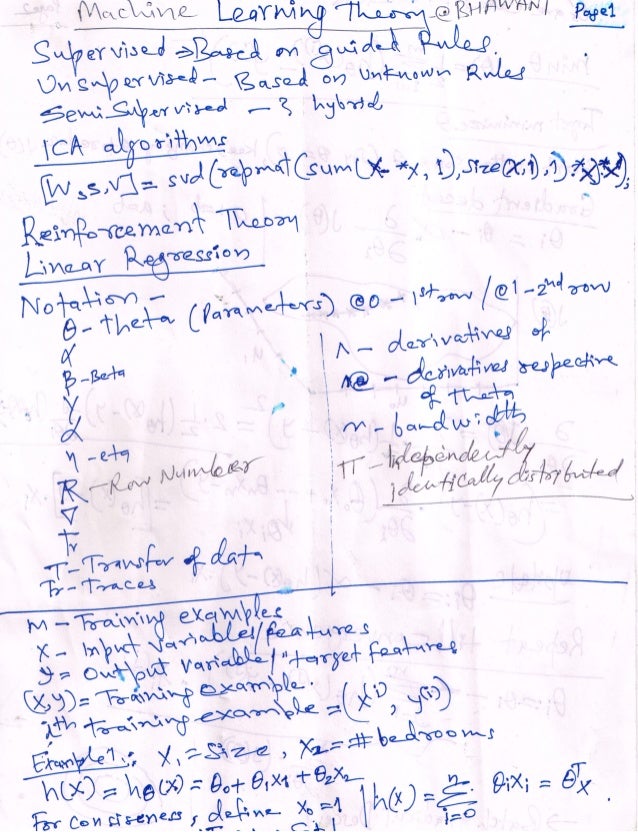 Machine Learning Theory @BHAWANI Page1
Supervised ⇒ Based on guided Rules.
Unsupervised - Based on Unknown Rules
Semi Supervised - } hybrid
ICA algorithms
[W,ss,v] = svd(repmat(sum(x.*x,1),size(x,1),1).*x)*x');
Reinforcement Theory
Linear Regression
Notation -
θ - theta (Parameters) @0 - 1st row / @1 - 2nd row
α
β - Beta
γ
α
η - eta
R - Row Number
∇
Tr
T - Transfer of data
Tr - Traces
Λ - derivatives of
- derivatives respective
of theta
- bandwidth
π - Idependently
identically distributed
M - Training examples
X - Input Variables/features
y = Output variable/"target features
(x,y) = Training example.
ith training example = (x(i), y(i))
Example1: X1 = Size, X2 = # bedrooms
h(x) = hθ(x) = θ0 + θ1x1 + θ2x2
For consiseness, define x0 = 1 | h(x) = Σ i=0 n θixi = θTx.